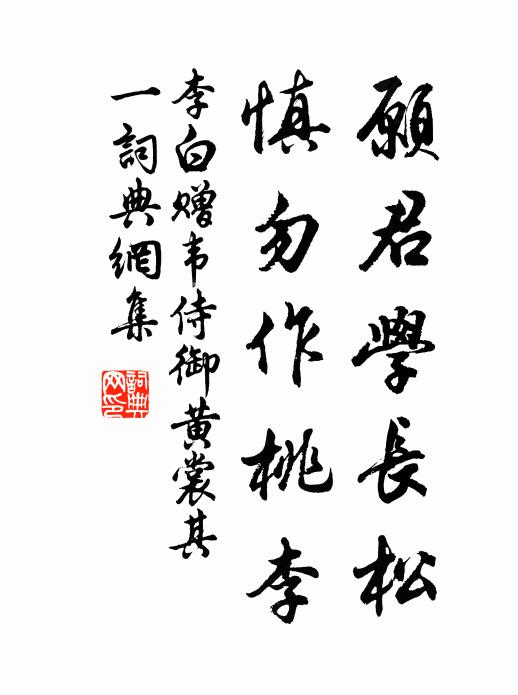 願君學長松
慎勿作桃李
李白赠韦侍御黄裳其
一詞典網集
詞典
网印